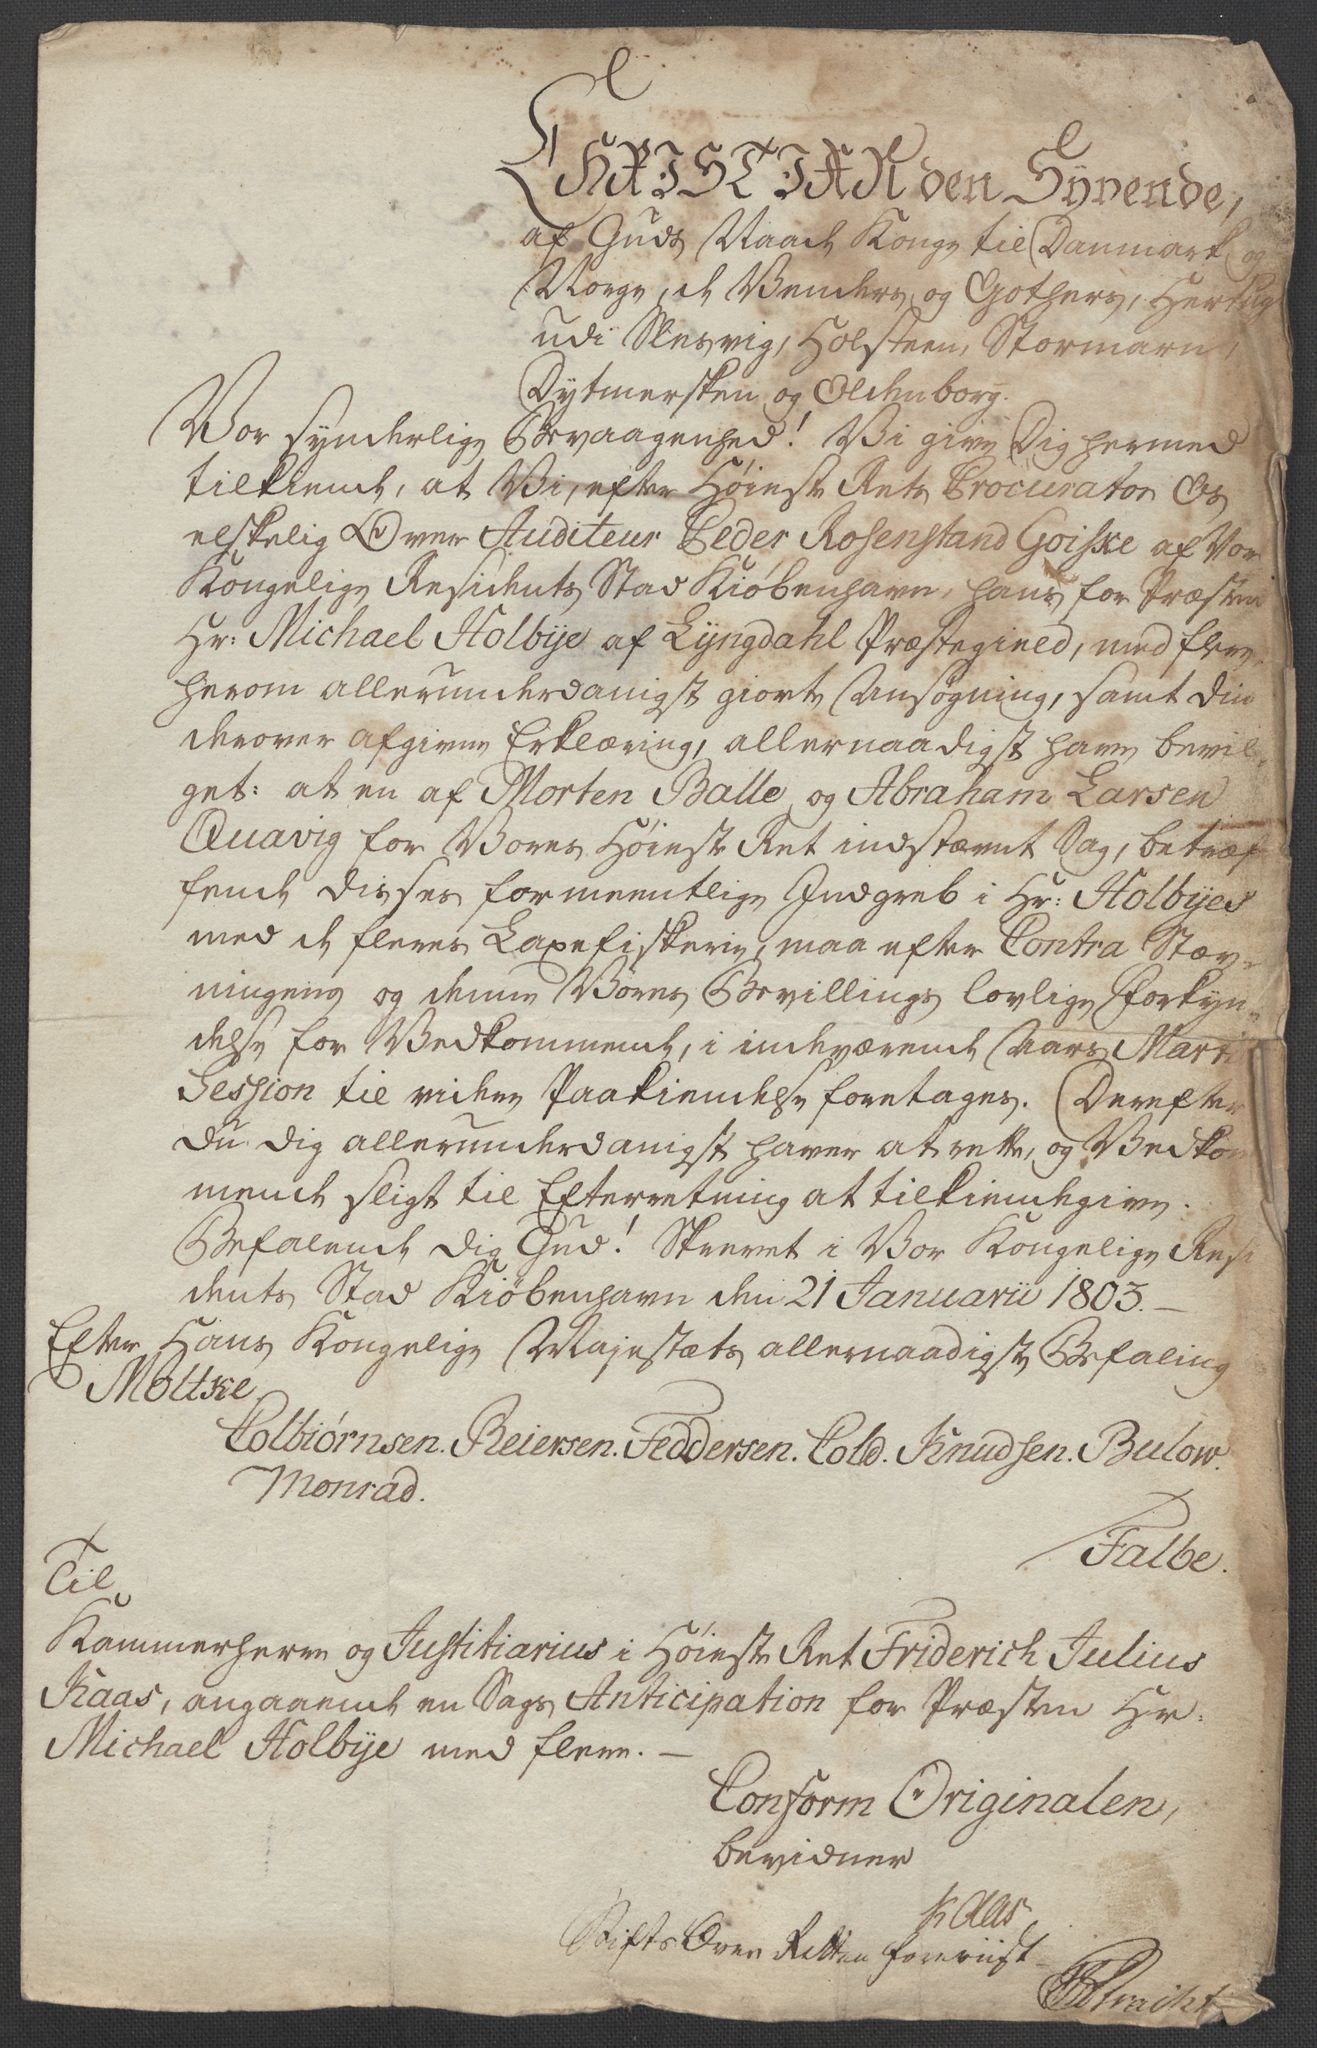 CHRISTIAN den Syvende,
af Guds Naade Konge til Danmark og
Norge, de Venders og Gothers, Hertug
udi Slesvig, Holsteen, Stormarn,
Dytmersken og Oldenborg.
Vor synderlige Bevaagenhed! Vi give Dig hermed
tilkiende, at Vi, efter Høieste Rets Procurator Os
elskelig Over Auditeur Peder Rosenstand Goiske af Vor
Kongelige Residents Stad Kiøbenhavn, hans for Præsten
Hr: Michael Holbÿe af Lÿngdahl Præstegield, med flere,
herom allerunderdanigst giorte Ansøgning, samt Din
derover afgivne Erklæring, allernaadigst have bevil-
get: at en af Morten Balle og Abraham Larsen
Quavig for Vores Høieste Ret indstævnt Sag, betræf-
fende disses formeentlige Indgreb i Hr: Holbÿes
med de fleres Laxefiskerie, maa efter Contra Stæv-
ningens og denne Vores Bevillings lovlige Forkyn-
delse for Vedkommende, i indeværende Aars Martii
Session til videre Paakiendelse foretages. Derefter
du dig allerunderdanigst haver at rette, og Vedkom
mende sligt til Efterretning at tilkiendegive.
Befalende dig Gud! Skrevet i Vor Kongelige Resi
dents Stad Kiøbenhavn den 21 Januarii 1803. —
Efter Hans Kongelige Majestæts allernaadigste Befaling
Moltke
Colbiørnsen. Reiersen. Feddersen. Cold. Knudsen. Bulow.
Monrad.
Falbe.
Til
Kammerherre og Justitiarius i Høieste Ret Friderich Julius
Kaas, angaaende en Sags Anticipation for Præsten Hr:
Michael Holbÿe med flere. —
Conform Originalen,
bevidner
Kaas
Stifts Over Retten foreviist